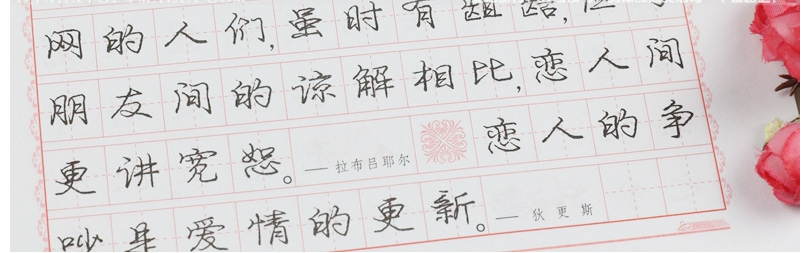 网的人们,虽时有龃龉,
朋友间的谅解相比,恋人间
更讲宽恕。——拉布吕耶尔 恋人的争
吵是爱情的更新。——狄更斯